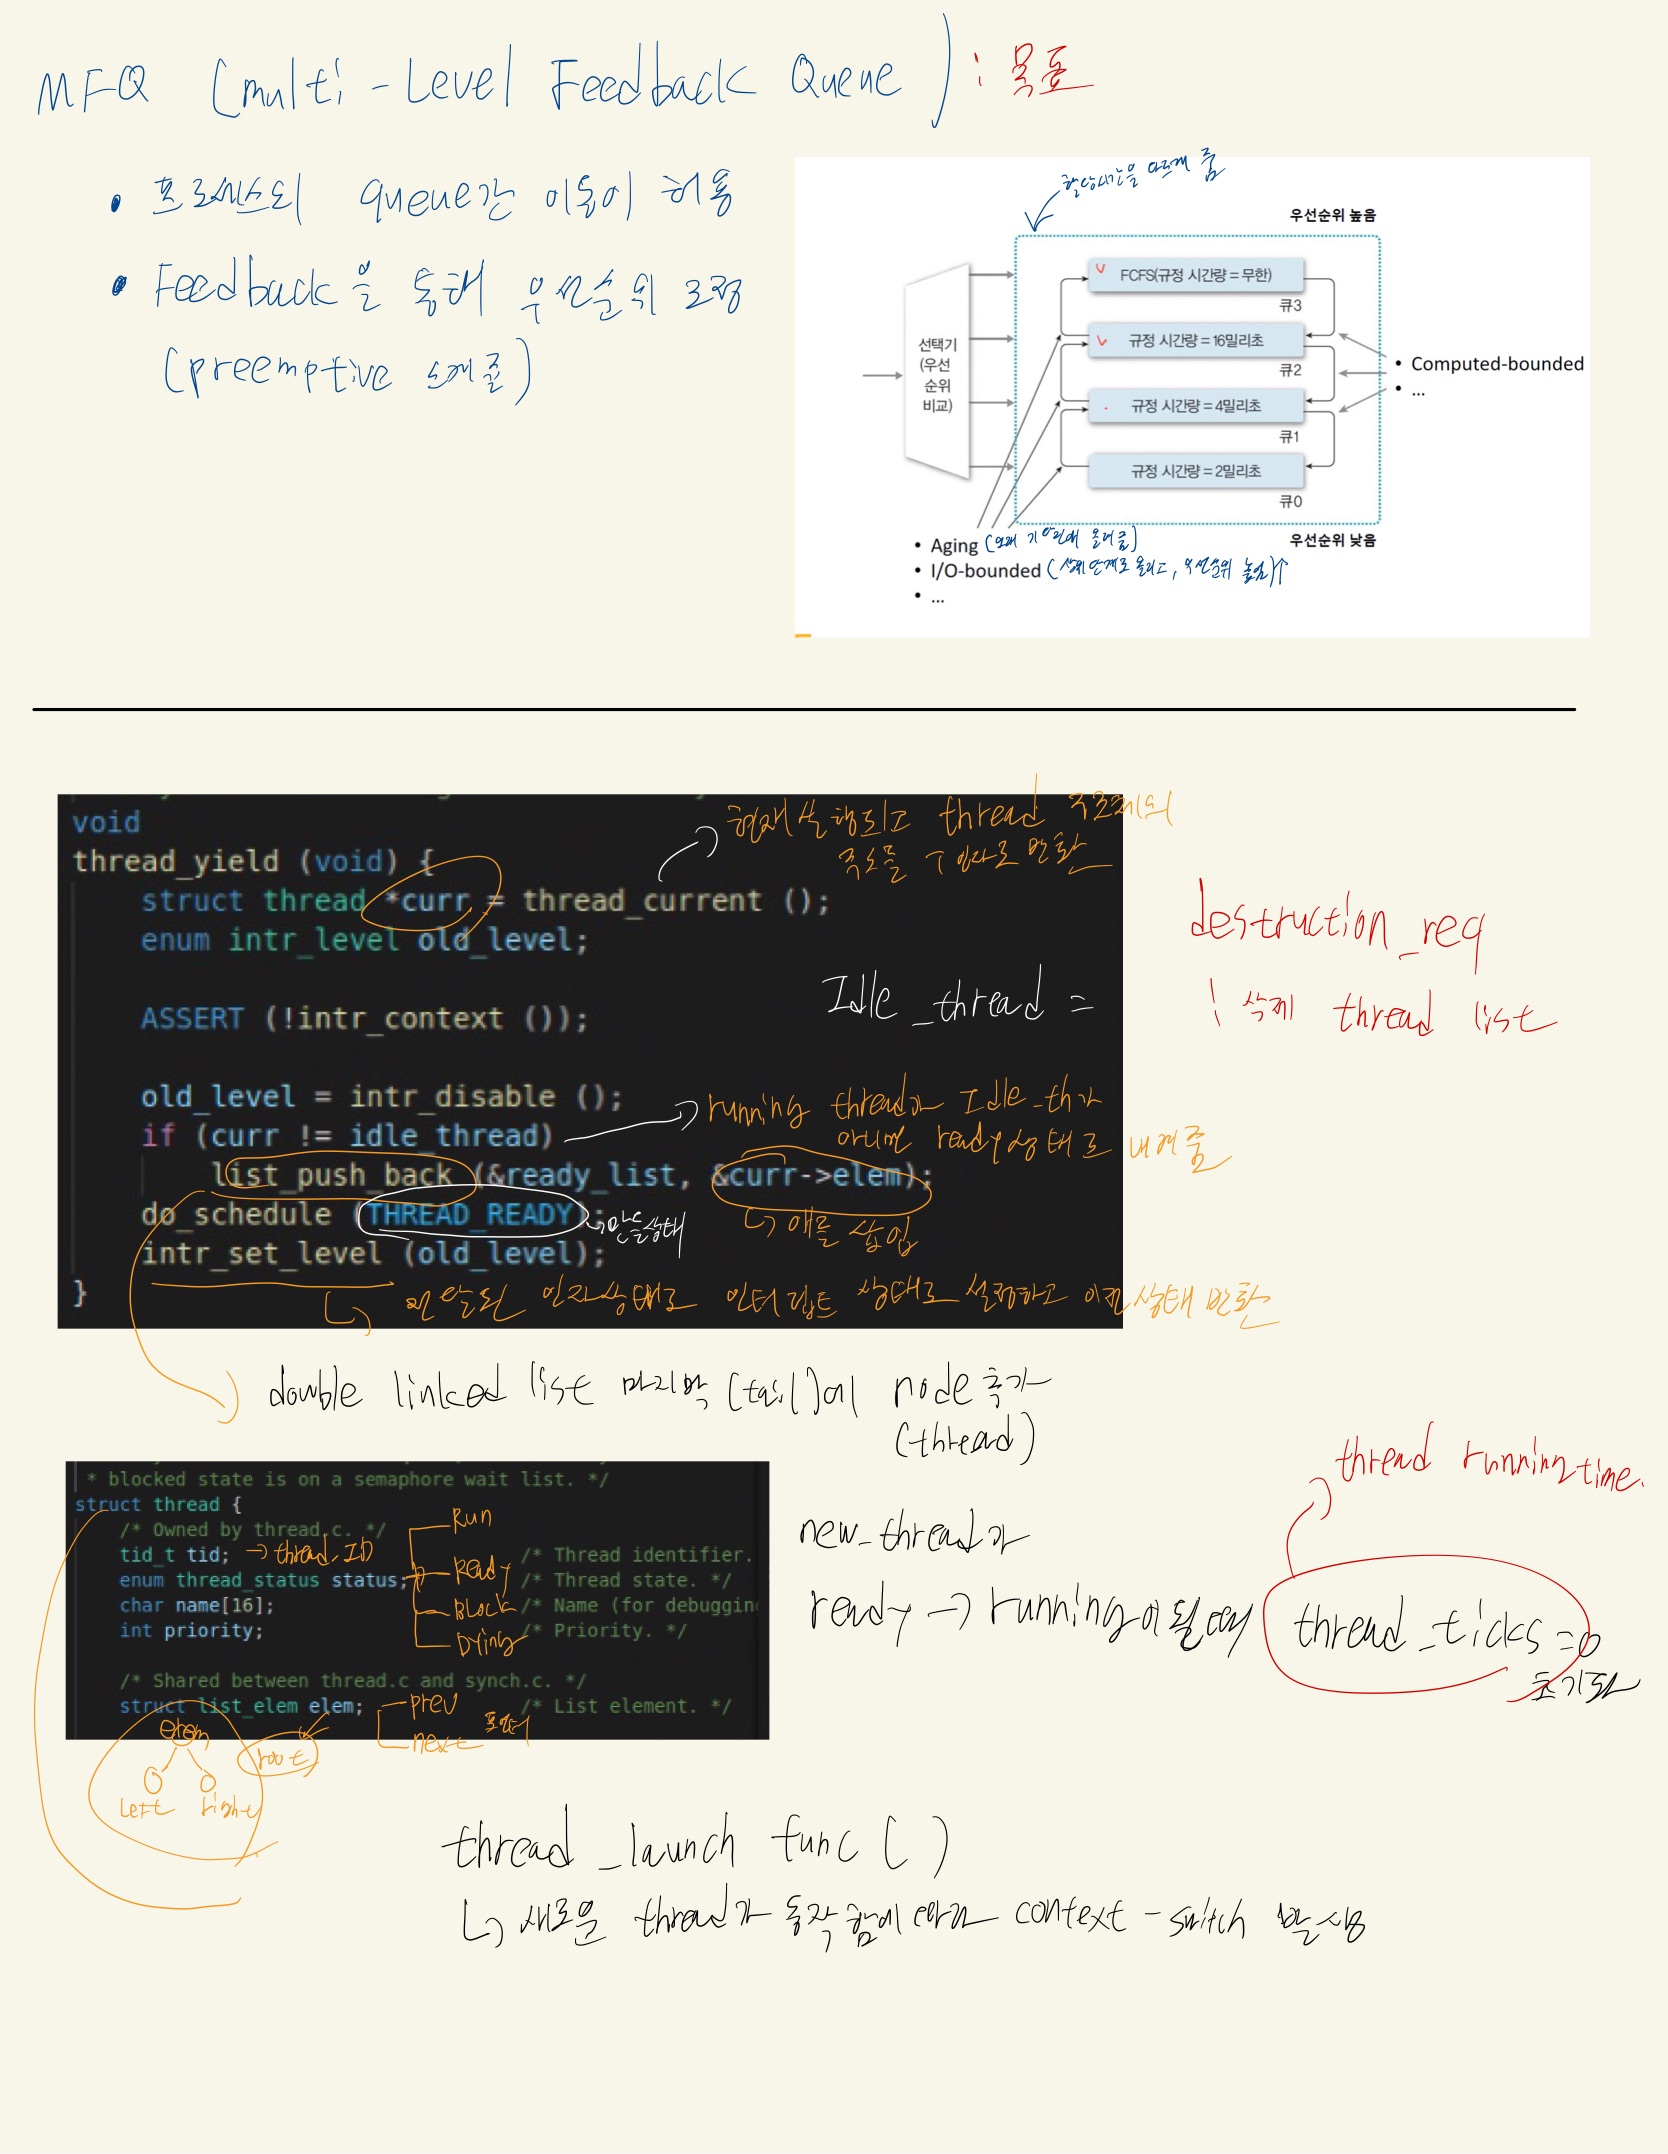 MFQ (multi-Level Feedback Queue) : 목표
• 프로세스의 queue간 이동이 허용
• Feedback을 통해 우선순위 조정
(preemptive 스케줄)
할당시간을 다르게 줌
우선순위 높음
FCFS(규정 시간량 = 무한)
큐3
규정 시간량 = 16밀리초
큐2
규정 시간량 = 4밀리초
큐1
규정 시간량 = 2밀리초
큐0
선택기
(우선
순위
비교)
• Computed-bounded
• ...
우선순위 낮음
• Aging (오래 기 올려줌)
• I/O-bounded (상위단계로 올리고, 우선순위 높임)↑
• ...
void
thread_yield (void) {
struct thread *curr = thread_current ();
enum intr_level old_level;
ASSERT (!intr_context ());
old_level = intr_disable ();
if (curr != idle_thread)
list_push_back (&ready_list, &curr->elem);
do_schedule (THREAD_READY);
intr_set_level (old_level);
}
현재 실행되고 thread 구조체의
주소를 반환
Idle_thread =
destruction_req
! 삭제 thread list
running thread가 Idle_th가
아니면 ready상태로 내려줌
↳ 얘를 삽입
→만들상태
↳ 전달된 인자상태로 인터럽트 상태로 설정하고 이전상태 반환
double linked list 마지막(tail)에 node추가
(thread)
* blocked state is on a semaphore wait list. */
struct thread {
/* Owned by thread.c. */
tid_t tid; /* Thread identifier.
enum thread_status status; /* Thread state. */
char name[16]; /* Name (for debuggin
int priority; /* Priority. */
/* Shared between thread.c and synch.c. */
struct list_elem elem; /* List element. */
→ thread_ID
Run
Ready
Block
Dying
prev
next 포인터
elem
root
left right
thread running time.
new_thread가
ready → running이 될때 thread_ticks = 0
초기화
thread_launch func ( )
↳ 새로운 thread가 동작함에 따라 context-switch 발생